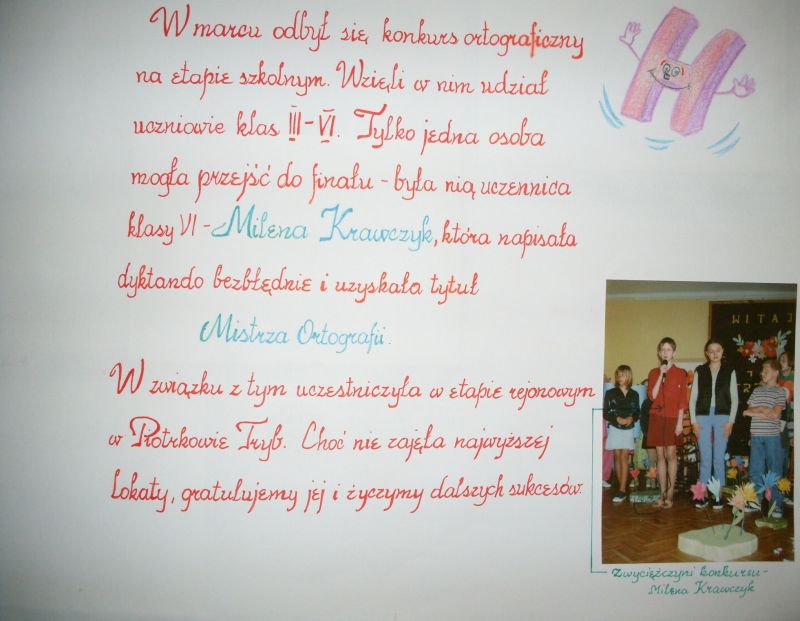 W marcu odbył się konkurs ortograficzny
na etapie szkolnym. Wzięli w nim udział
uczniowie klas III-VI. Tylko jedna osoba
mogła przejść do finału - była nią uczennica
klasy VI - Milena Krawczyk, która napisała
dyktando bezbłędnie i uzyskała tytuł
Mistrza Ortografii.
W związku z tym uczestniczyła w etapie rejonowym
w Piotrkowie Tryb. Choć nie zajęła najwyższej
lokaty, gratulujemy jej i życzymy dalszych sukcesów.
H
WITAJ
Zwyciężczyni konkursu -
Milena Krawczyk